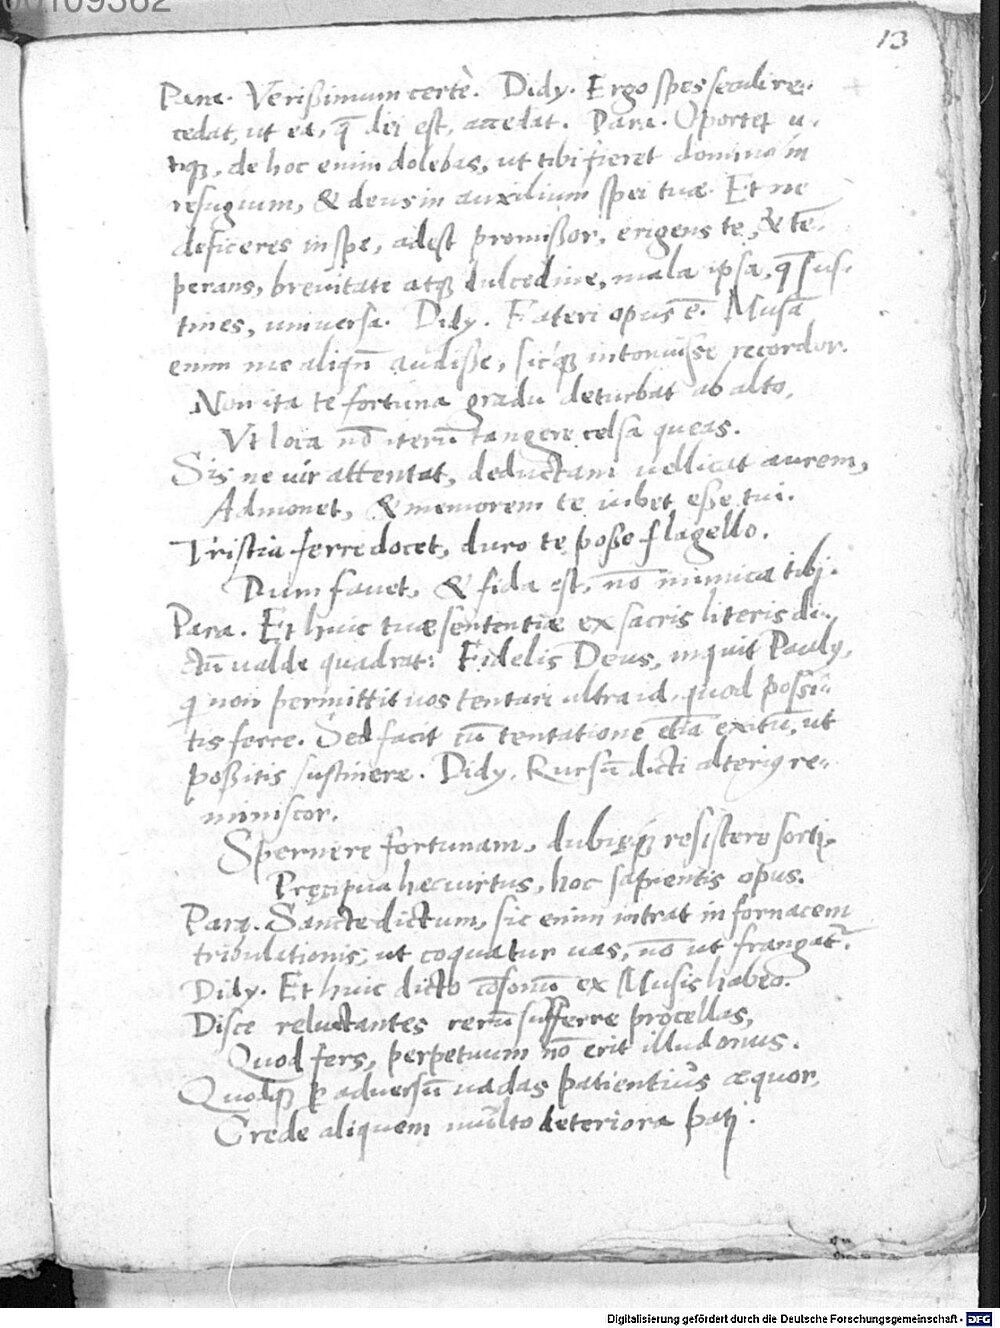 00109362
13
Para. Verißimum certè. Didy. Ergo spes seculi re-
cedat, ut ea, q̄ dei est, accedat. Para. Oportet u-
tiqꝫ, de hoc enim dolebas, ut tibi fieret dominus in
refugium, & deus in auxilium spei tuæ. Et ne
deficeres in spe, adest promißor, erigens te, & tē-
perans, brevitate atqꝫ dulcedine, mala ipsa, q̄ sus-
tines, universa. Didy. Fateri opus ē. Musā
enim me aliqñ audiße, sicqꝫ intonuisse recordor.
Non ita te fortuna gradu deturbat ab alto,
Vt loca nō iterū tangere celsa queas.
Sis ne vir attentat, deductam vellicat aurem,
Admonet, & memorem te iubet eße tui.
Tristia ferre docet, duro te poße flagello.
Dum favet, & fida est, nō inimica tibi.
Para. Et huic tuæ sententiæ ex sacris literis di-
ctū valde quadrat: Fidelis Deus, inquit Paulꝰ,
q̄ non permittit vos tentari ultra id, quod possi-
tis ferre. Sed facit cū tentatione etiā exitū, ut
poßitis sustinere. Didy. Rursū dicti alteriꝰ re-
miniscor.
Spernere fortunam, dubięqꝫ resistere sorti,
Pręcipua hæc virtus, hoc sapientis opus.
Para. Sancte dictum, sic enim intrat in fornacem
tribulationis, ut coquatur vas, nō ut frangat̄.
Didy. Et huic dicto cōsonū ex Musis habeo.
Disce reluctantes rerū sufferre procellas,
Quod fers, perpetuum nō erit illud onus.
Quotqꝫ ꝑ adversū vadas patientiùs æquor,
Crede aliquem multo deteriora pati.
Digitalisierung gefördert durch die Deutsche Forschungsgemeinschaft - DFG